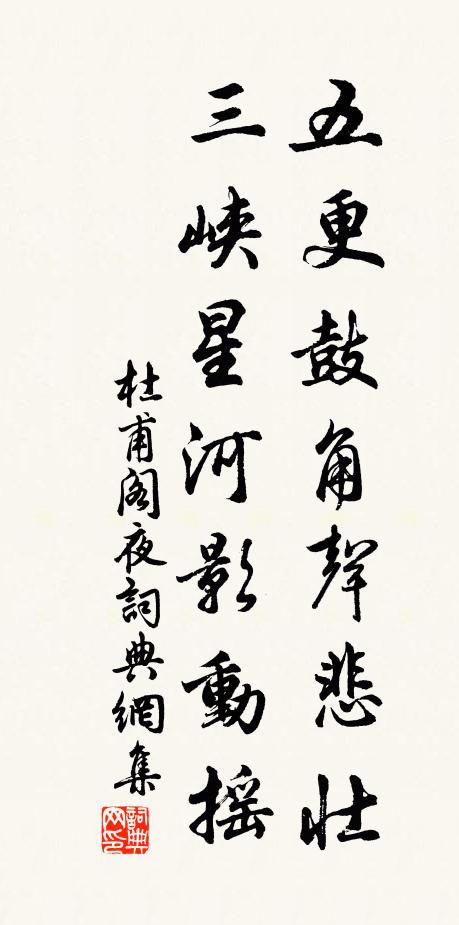 五更鼓角聲悲壯
三峽星河影動搖
杜甫閣夜詞典網集
詞典網印